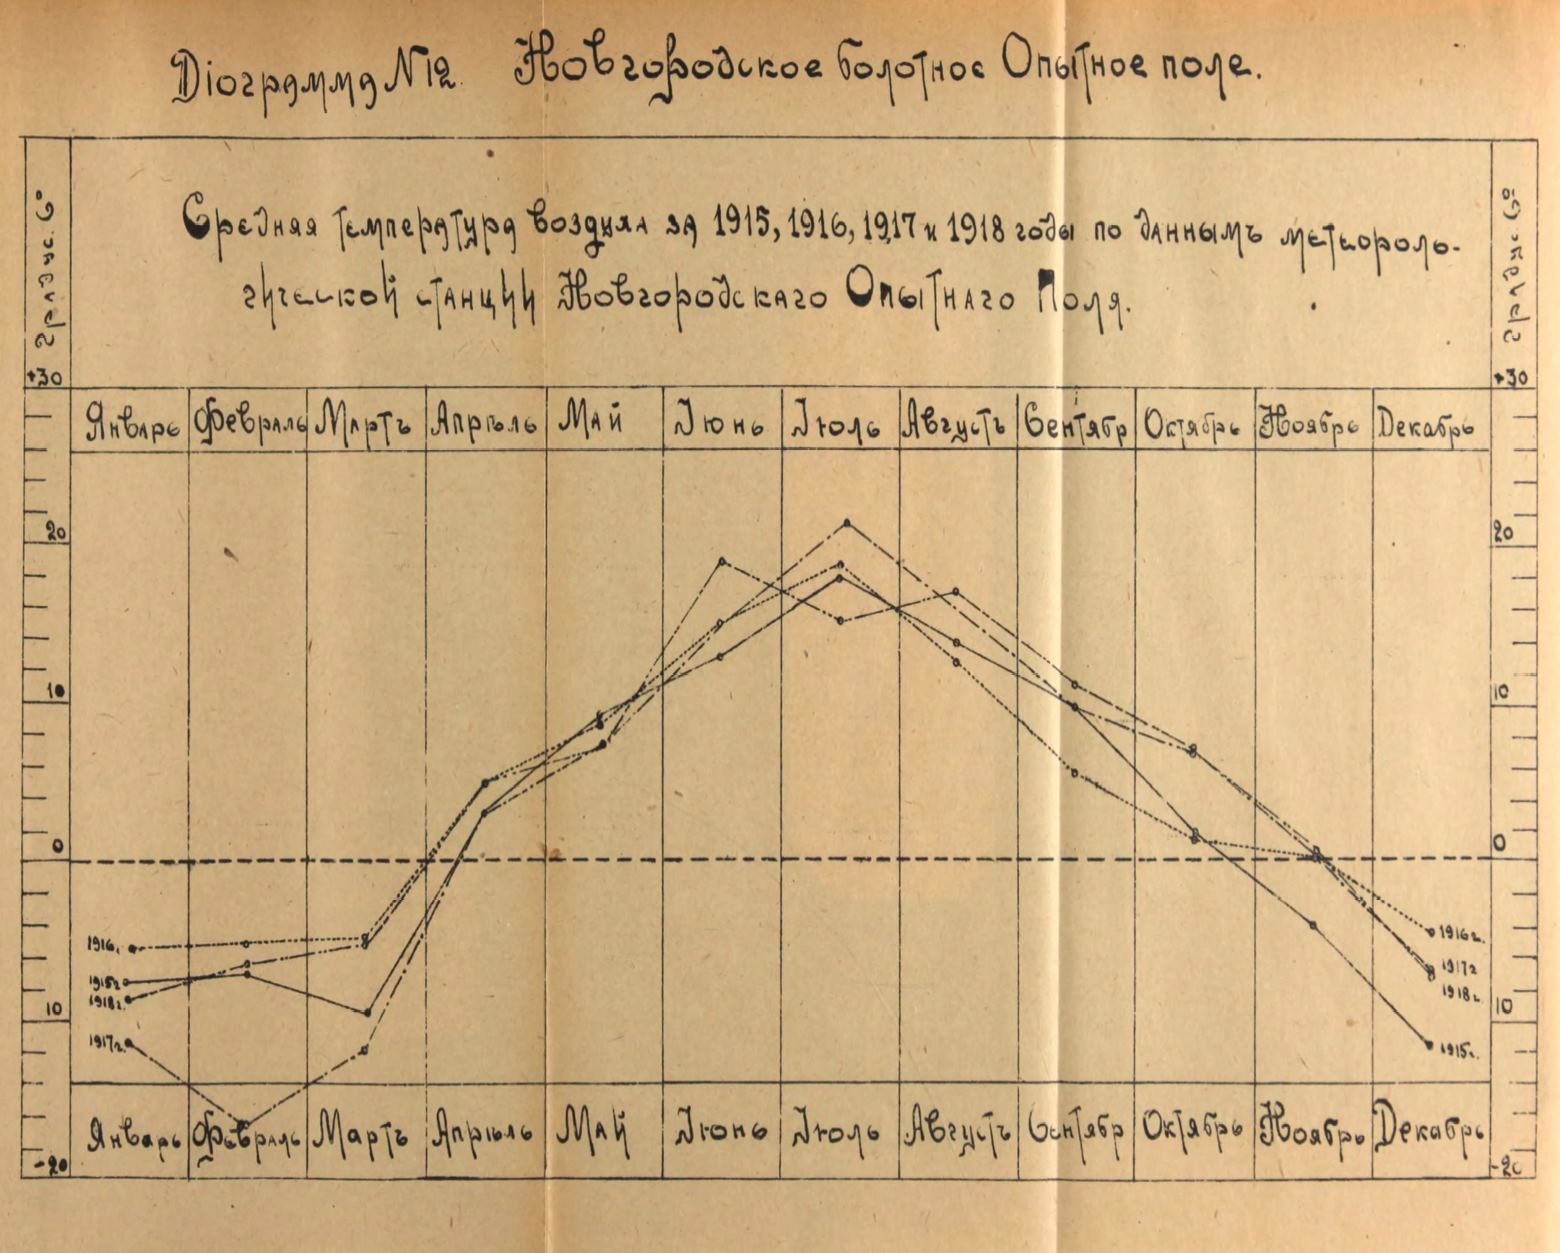 Діограмма №12. Новгородское болотное Опытное поле.
Средняя температура воздуха за 1915, 1916, 1917 и 1918 годы по даннымъ метероло-
гической станции Новгородскаго Опытнаго Поля.
Градус. C°
Градус. C°
+30
+30
Январь Февраль Мартъ Апрѣль Май Июнь Июль Августъ Сентябр Октябрь Ноябрь Декабрь
20 20
10 10
0 0
1916.
1916г.
1915г
1917г
1918г.
1918г.
10 10
1917г.
1915г.
Январь Февраль Мартъ Апрѣль Май Июнь Июль Августъ Сентябр Октябрь Ноябрь Декабрь
-20 -20